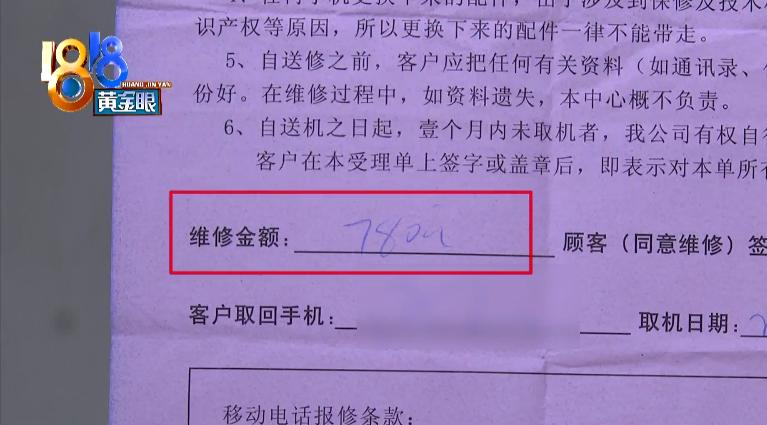 1818
HUANG JIN YAN
黄金眼
识产权等原因，所以更换下来的配件一律不能带走。
5、自送修之前，客户应把任何有关资料（如通讯录、
份好。在维修过程中，如资料遗失，本中心概不负责。
6、自送机之日起，壹个月内未取机者，我公司有权自
客户在本受理单上签字或盖章后，即表示对本单所
维修金额： 780元 顾客（同意维修）签
客户取回手机： 取机日期：
移动电话报修条款：